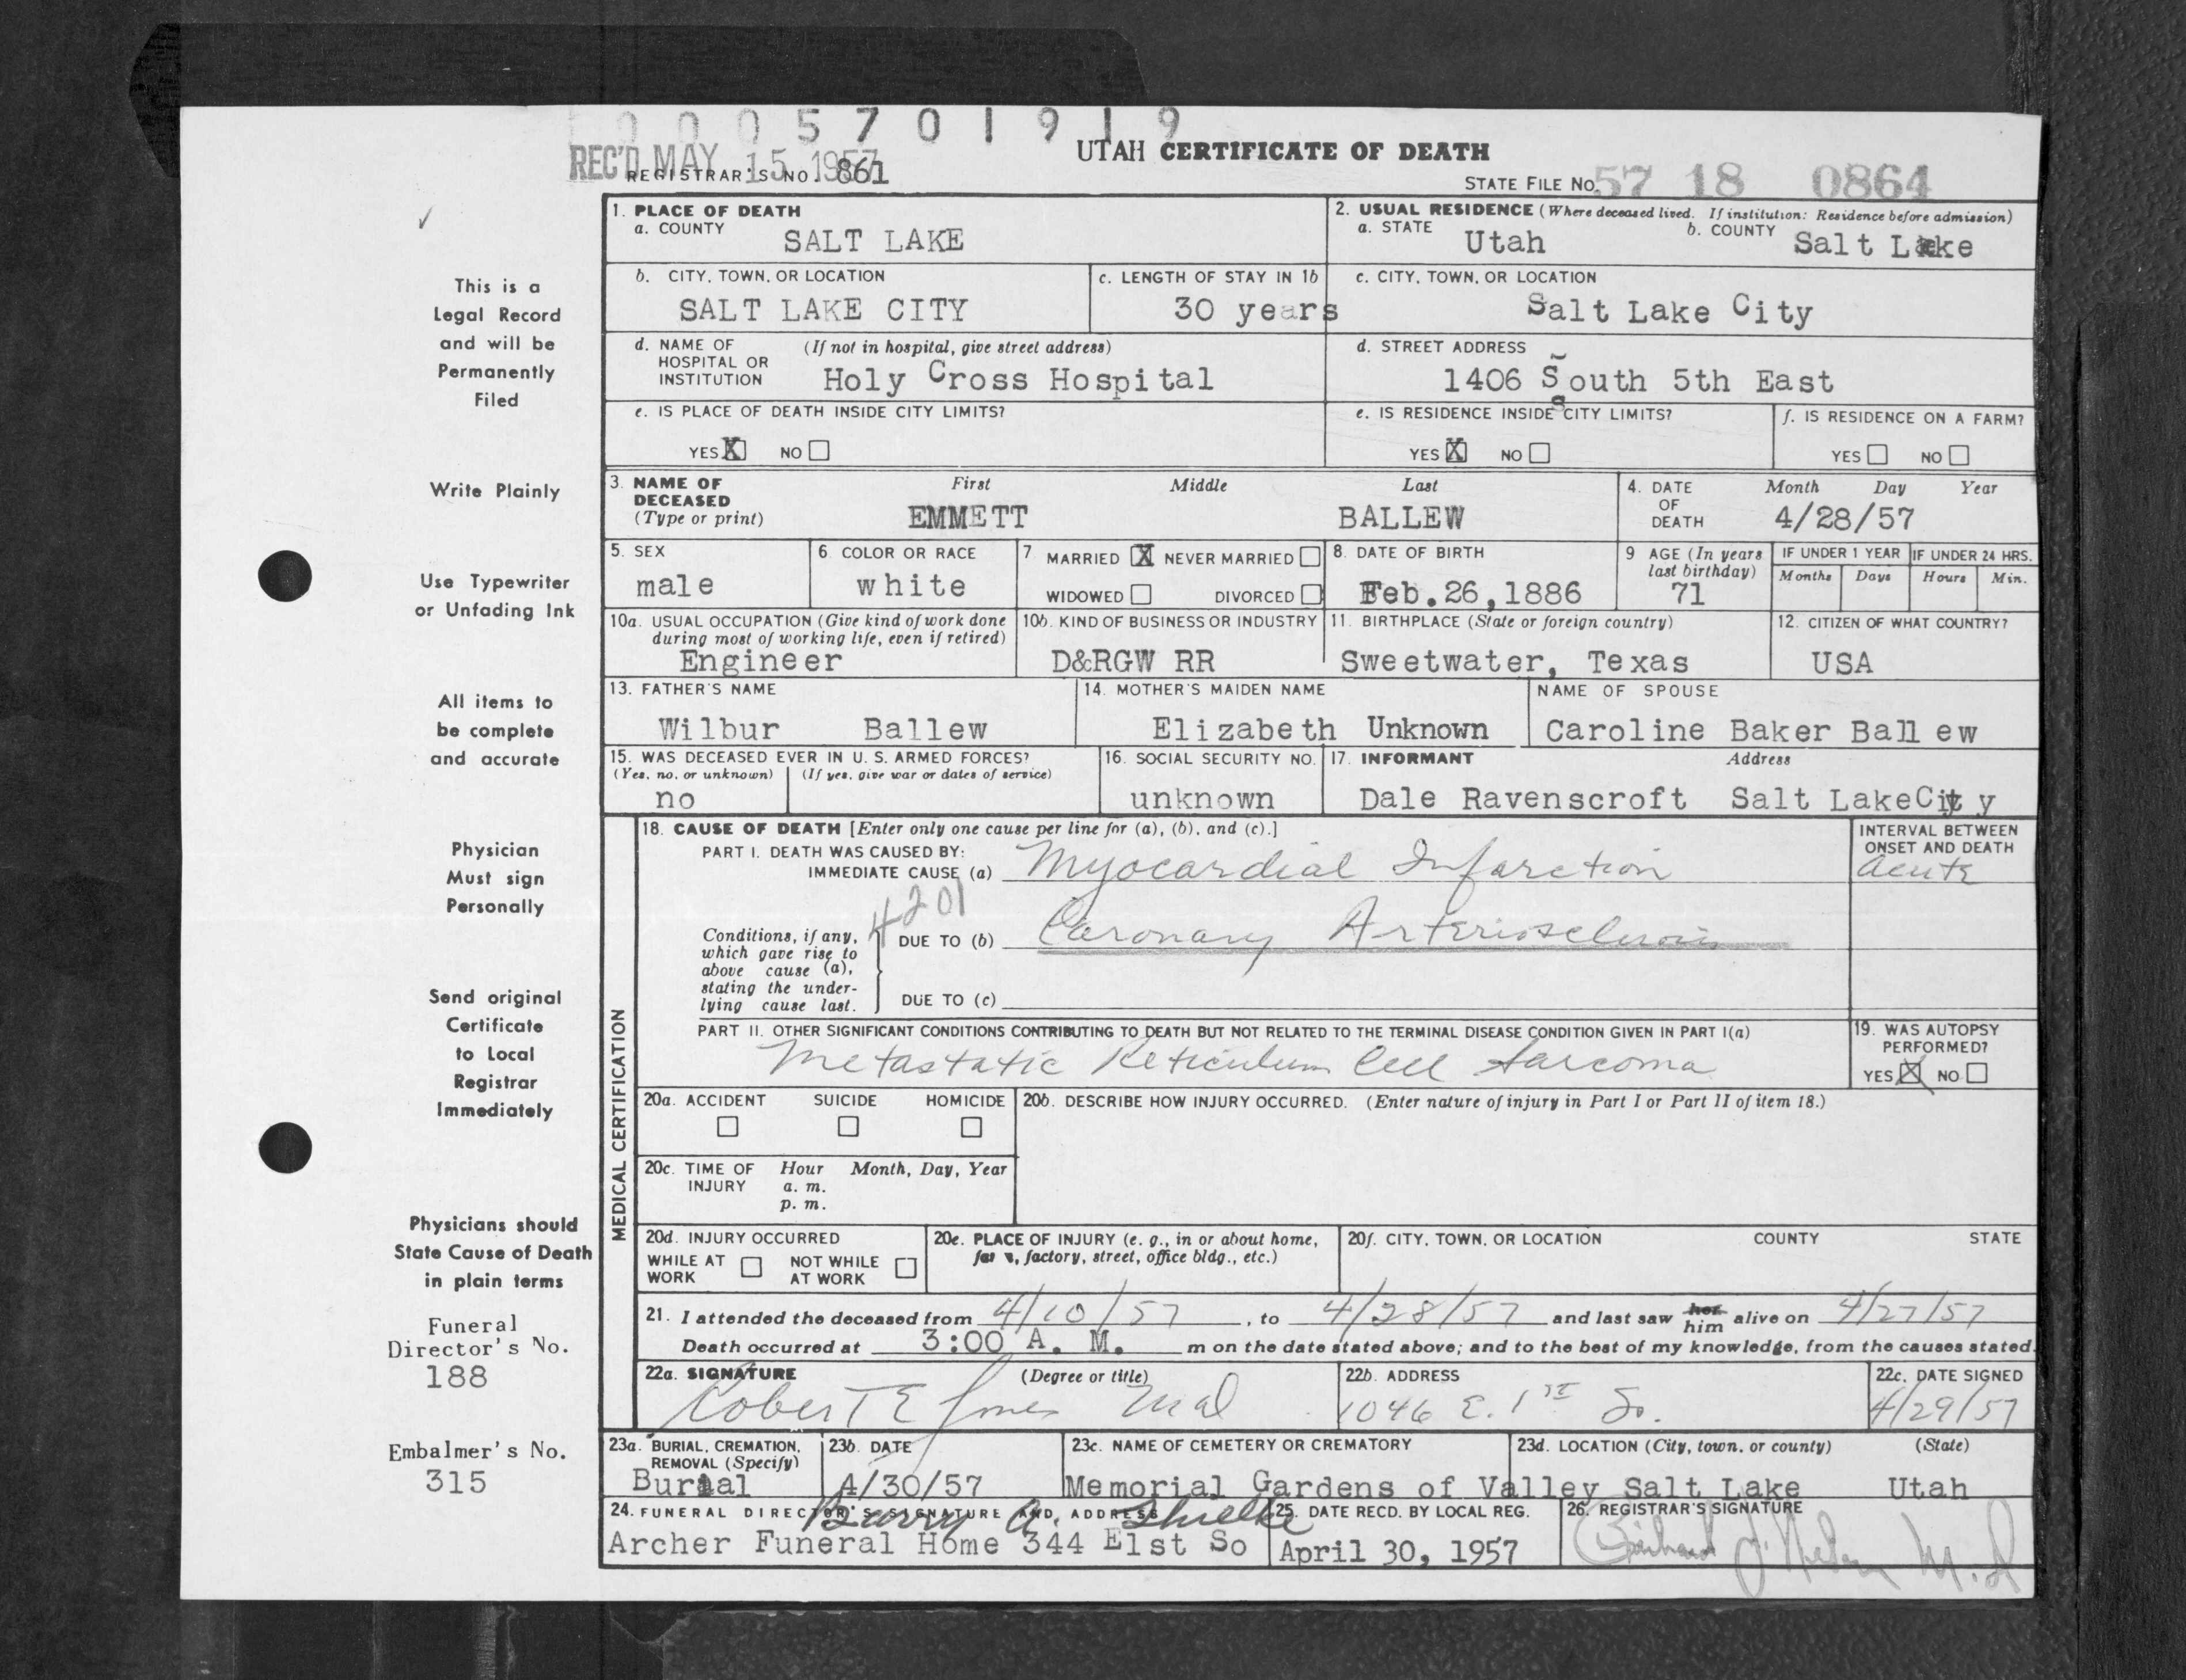 0 0 0 5 7 0 1 9 1 9
REC'D MAY 15 1957
UTAH CERTIFICATE OF DEATH
REGISTRAR'S NO. 861
STATE FILE NO. 57 18 0864
This is a
Legal Record
and will be
Permanently
Filed
Write Plainly
Use Typewriter
or Unfading Ink
All items to
be complete
and accurate
Physician
Must sign
Personally
Send original
Certificate
to Local
Registrar
Immediately
Physicians should
State Cause of Death
in plain terms
Funeral
Director's No.
188
Embalmer's No.
315
1. PLACE OF DEATH
a. COUNTY
SALT LAKE
2. USUAL RESIDENCE (Where deceased lived. If institution: Residence before admission)
a. STATE Utah b. COUNTY Salt Lake
b. CITY, TOWN, OR LOCATION
SALT LAKE CITY
c. LENGTH OF STAY IN 1b
30 years
c. CITY, TOWN, OR LOCATION
Salt Lake City
d. NAME OF (If not in hospital, give street address)
HOSPITAL OR
INSTITUTION Holy Cross Hospital
d. STREET ADDRESS
1406 South 5th East
e. IS PLACE OF DEATH INSIDE CITY LIMITS?
YES X NO
e. IS RESIDENCE INSIDE CITY LIMITS?
YES X NO
f. IS RESIDENCE ON A FARM?
YES NO
3. NAME OF First Middle Last
DECEASED
(Type or print) EMMETT BALLEW
4. DATE Month Day Year
OF
DEATH 4/28/57
5. SEX
male
6. COLOR OR RACE
white
7. MARRIED X NEVER MARRIED
WIDOWED DIVORCED
8. DATE OF BIRTH
Feb.26,1886
9 AGE (In years
last birthday)
71
IF UNDER 1 YEAR IF UNDER 24 HRS.
Months Days Hours Min.
10a. USUAL OCCUPATION (Give kind of work done
during most of working life, even if retired)
Engineer
10b. KIND OF BUSINESS OR INDUSTRY
D&RGW RR
11. BIRTHPLACE (State or foreign country)
Sweetwater, Texas
12. CITIZEN OF WHAT COUNTRY?
USA
13. FATHER'S NAME
Wilbur Ballew
14. MOTHER'S MAIDEN NAME
Elizabeth Unknown
NAME OF SPOUSE
Caroline Baker Ballew
15. WAS DECEASED EVER IN U. S. ARMED FORCES?
(Yes, no, or unknown) (If yes, give war or dates of service)
no
16. SOCIAL SECURITY NO.
unknown
17. INFORMANT Address
Dale Ravenscroft Salt LakeCity
MEDICAL CERTIFICATION
18. CAUSE OF DEATH [Enter only one cause per line for (a), (b), and (c).]
INTERVAL BETWEEN
ONSET AND DEATH
PART I. DEATH WAS CAUSED BY:
IMMEDIATE CAUSE (a) Myocardial Infarction acute
4201
Conditions, if any,
which gave rise to
above cause (a),
stating the under-
lying cause last.
DUE TO (b) Coronary Arteriosclerosis
DUE TO (c)
PART II. OTHER SIGNIFICANT CONDITIONS CONTRIBUTING TO DEATH BUT NOT RELATED TO THE TERMINAL DISEASE CONDITION GIVEN IN PART I(a)
Metastatic Reticulum Cell Sarcoma
19. WAS AUTOPSY
PERFORMED?
YES X NO
20a. ACCIDENT SUICIDE HOMICIDE
20b. DESCRIBE HOW INJURY OCCURRED. (Enter nature of injury in Part I or Part II of item 18.)
20c. TIME OF Hour Month, Day, Year
INJURY a. m.
p. m.
20d. INJURY OCCURRED
WHILE AT NOT WHILE
WORK AT WORK
20e. PLACE OF INJURY (e. g., in or about home,
farm, factory, street, office bldg., etc.)
20f. CITY, TOWN, OR LOCATION COUNTY STATE
21. I attended the deceased from 4/10/57, to 4/28/57 and last saw her him alive on 4/27/57
Death occurred at 3:00 A. M. m on the date stated above; and to the best of my knowledge, from the causes stated.
22a. SIGNATURE (Degree or title)
Robert E Jones Md
22b. ADDRESS
1046 E. 1st So.
22c. DATE SIGNED
4/29/57
23a. BURIAL, CREMATION,
REMOVAL (Specify)
Burial
23b. DATE
4/30/57
23c. NAME OF CEMETERY OR CREMATORY
Memorial Gardens of Valley
23d. LOCATION (City, town, or county) (State)
Salt Lake Utah
24. FUNERAL DIRECTOR'S SIGNATURE AND ADDRESS
Archer Funeral Home 344 E1st So
25. DATE RECD. BY LOCAL REG.
April 30, 1957
26. REGISTRAR'S SIGNATURE
M.D